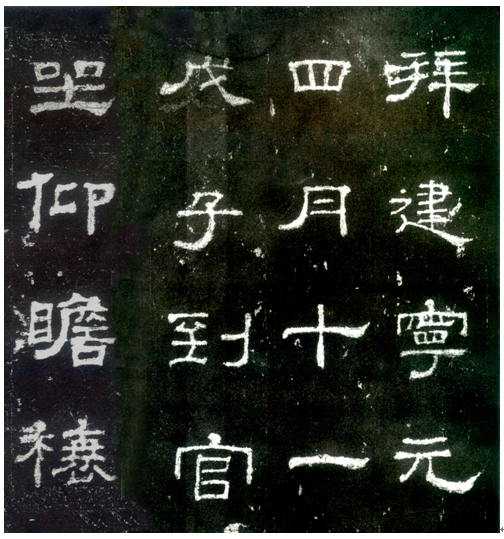 拜建寧元
四月十一
戊子到官
坐仰瞻榱